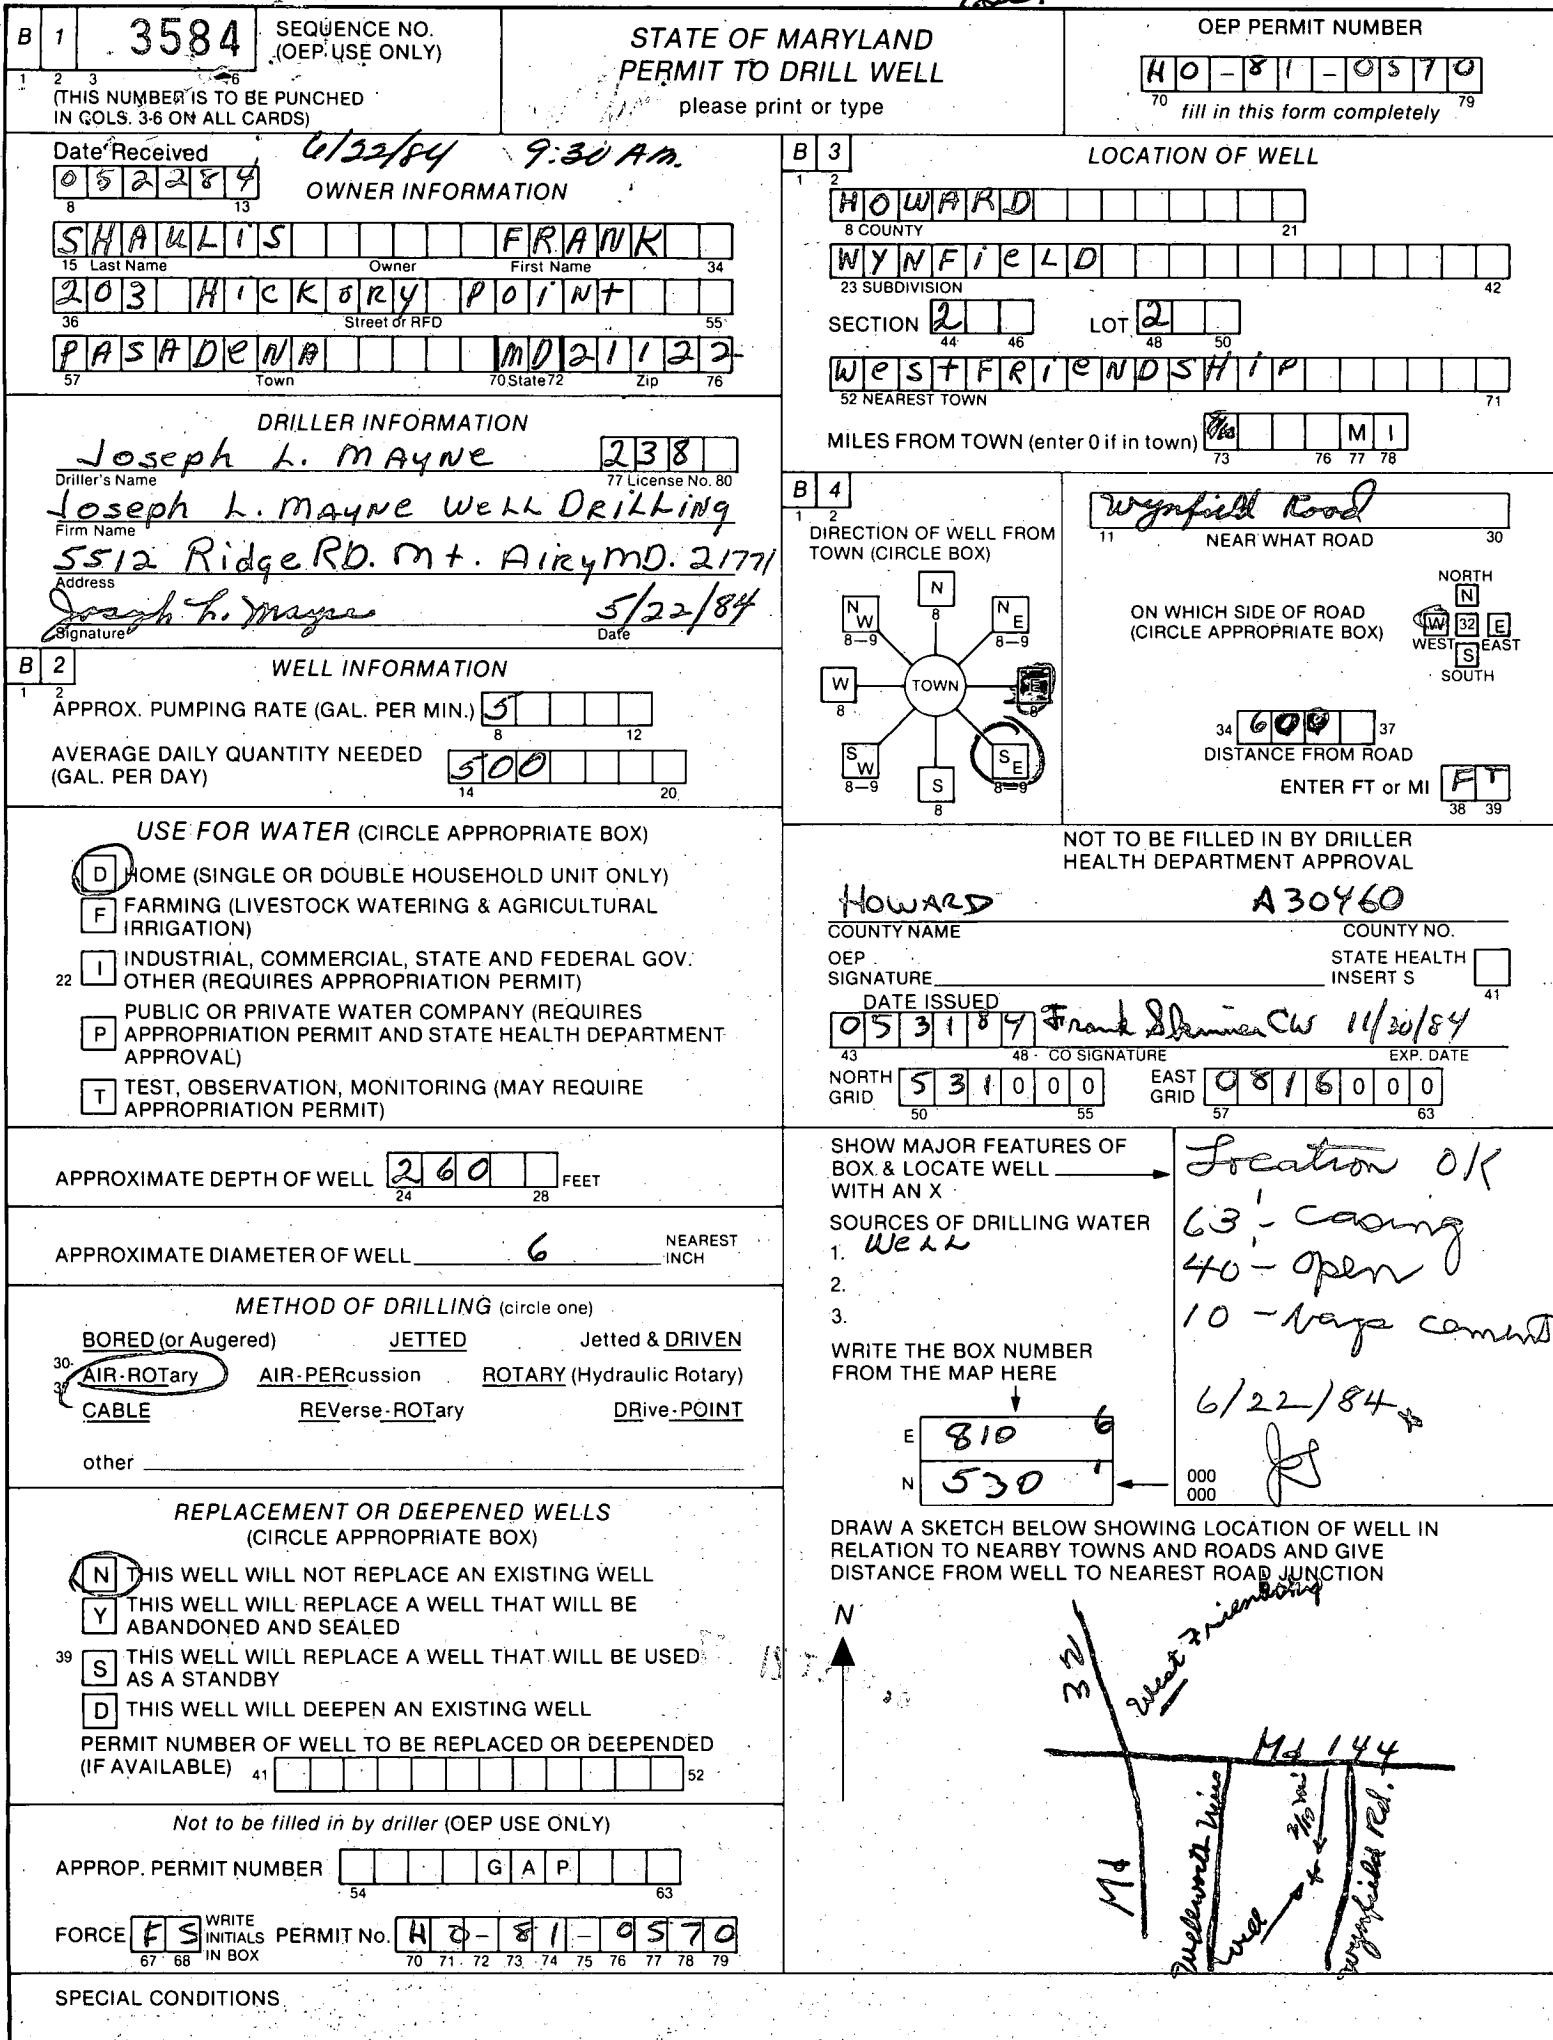 B 1 3584 SEQUENCE NO. (OEP USE ONLY)
1 2 3 6
(THIS NUMBER IS TO BE PUNCHED
IN COLS. 3-6 ON ALL CARDS)
STATE OF MARYLAND
PERMIT TO DRILL WELL
please print or type
OEP PERMIT NUMBER
HO-81-0570
70 79
fill in this form completely
Date Received 6/22/84 9:30 Am.
052284
8 13
OWNER INFORMATION
SHAULIS FRANK
15 Last Name Owner First Name 34
203 HICKORY POINt
36 Street or RFD 55
PASADeNA MD 21122
57 Town 70 State 72 Zip 76
DRILLER INFORMATION
Joseph L. MAYNe 238
Driller's Name 77 License No. 80
Joseph L. MAYNe WeLL DRiLLing
Firm Name
5512 Ridge RD. Mt. AiryMD. 21771
Address
Joseph L. Mayne 5/22/84
Signature Date
B 2 WELL INFORMATION
1 2
APPROX. PUMPING RATE (GAL. PER MIN.) 5
8 12
AVERAGE DAILY QUANTITY NEEDED
(GAL. PER DAY) 500
14 20
USE FOR WATER (CIRCLE APPROPRIATE BOX)
D HOME (SINGLE OR DOUBLE HOUSEHOLD UNIT ONLY)
F FARMING (LIVESTOCK WATERING & AGRICULTURAL
IRRIGATION)
22 I INDUSTRIAL, COMMERCIAL, STATE AND FEDERAL GOV.
OTHER (REQUIRES APPROPRIATION PERMIT)
P PUBLIC OR PRIVATE WATER COMPANY (REQUIRES
APPROPRIATION PERMIT AND STATE HEALTH DEPARTMENT
APPROVAL)
T TEST, OBSERVATION, MONITORING (MAY REQUIRE
APPROPRIATION PERMIT)
APPROXIMATE DEPTH OF WELL 260 FEET
24 28
APPROXIMATE DIAMETER OF WELL 6 NEAREST INCH
METHOD OF DRILLING (circle one)
BORED (or Augered) JETTED Jetted & DRIVEN
30- AIR-ROTary AIR-PERcussion ROTARY (Hydraulic Rotary)
CABLE REVerse-ROTary DRive-POINT
other
REPLACEMENT OR DEEPENED WELLS
(CIRCLE APPROPRIATE BOX)
N THIS WELL WILL NOT REPLACE AN EXISTING WELL
Y THIS WELL WILL REPLACE A WELL THAT WILL BE
ABANDONED AND SEALED
39 S THIS WELL WILL REPLACE A WELL THAT WILL BE USED
AS A STANDBY
D THIS WELL WILL DEEPEN AN EXISTING WELL
PERMIT NUMBER OF WELL TO BE REPLACED OR DEEPENDED
(IF AVAILABLE) 41 52
Not to be filled in by driller (OEP USE ONLY)
APPROP. PERMIT NUMBER G A P
54 63
FORCE FS WRITE INITIALS IN BOX PERMIT No. HO-81-0570
67 68 70 71 72 73 74 75 76 77 78 79
SPECIAL CONDITIONS
B 3 LOCATION OF WELL
1 2
HOWARD
8 COUNTY 21
WYNFieLD
23 SUBDIVISION 42
SECTION 2 LOT 2
44 46 48 50
WestFRieNDSHiP
52 NEAREST TOWN 71
MILES FROM TOWN (enter 0 if in town) M I
73 76 77 78
B 4
1 2
DIRECTION OF WELL FROM
TOWN (CIRCLE BOX)
N
8
N W
8-9
N E
8-9
W
8
TOWN
E
8
S W
8-9
S
8
S E
8-9
Wynfield Road
11 NEAR WHAT ROAD 30
ON WHICH SIDE OF ROAD
(CIRCLE APPROPRIATE BOX)
NORTH
N
W 32 E
WEST EAST
S
SOUTH
34 600 37
DISTANCE FROM ROAD
ENTER FT or MI FT
38 39
NOT TO BE FILLED IN BY DRILLER
HEALTH DEPARTMENT APPROVAL
HOWARD A30460
COUNTY NAME COUNTY NO.
OEP SIGNATURE STATE HEALTH INSERT S
41
DATE ISSUED
053184 Frank Skinner CW 11/30/84
43 48 CO SIGNATURE EXP. DATE
NORTH GRID 531000 EAST GRID 0816000
50 55 57 63
SHOW MAJOR FEATURES OF
BOX & LOCATE WELL
WITH AN X
SOURCES OF DRILLING WATER
1. WeLL
2.
3.
WRITE THE BOX NUMBER
FROM THE MAP HERE
E 810 6
N 530 1
Location OK
63' - casing
40' - open
10 - bags cement
6/22/84
000
000
DRAW A SKETCH BELOW SHOWING LOCATION OF WELL IN
RELATION TO NEARBY TOWNS AND ROADS AND GIVE
DISTANCE FROM WELL TO NEAREST ROAD JUNCTION
N
West
Md 32
Md 144
Well
Wynfield Rd.